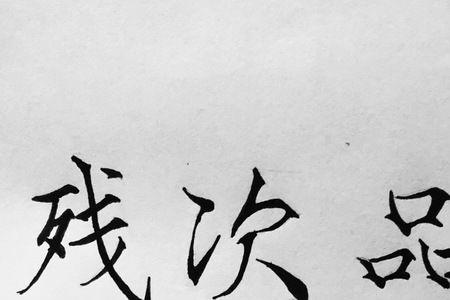 残次品